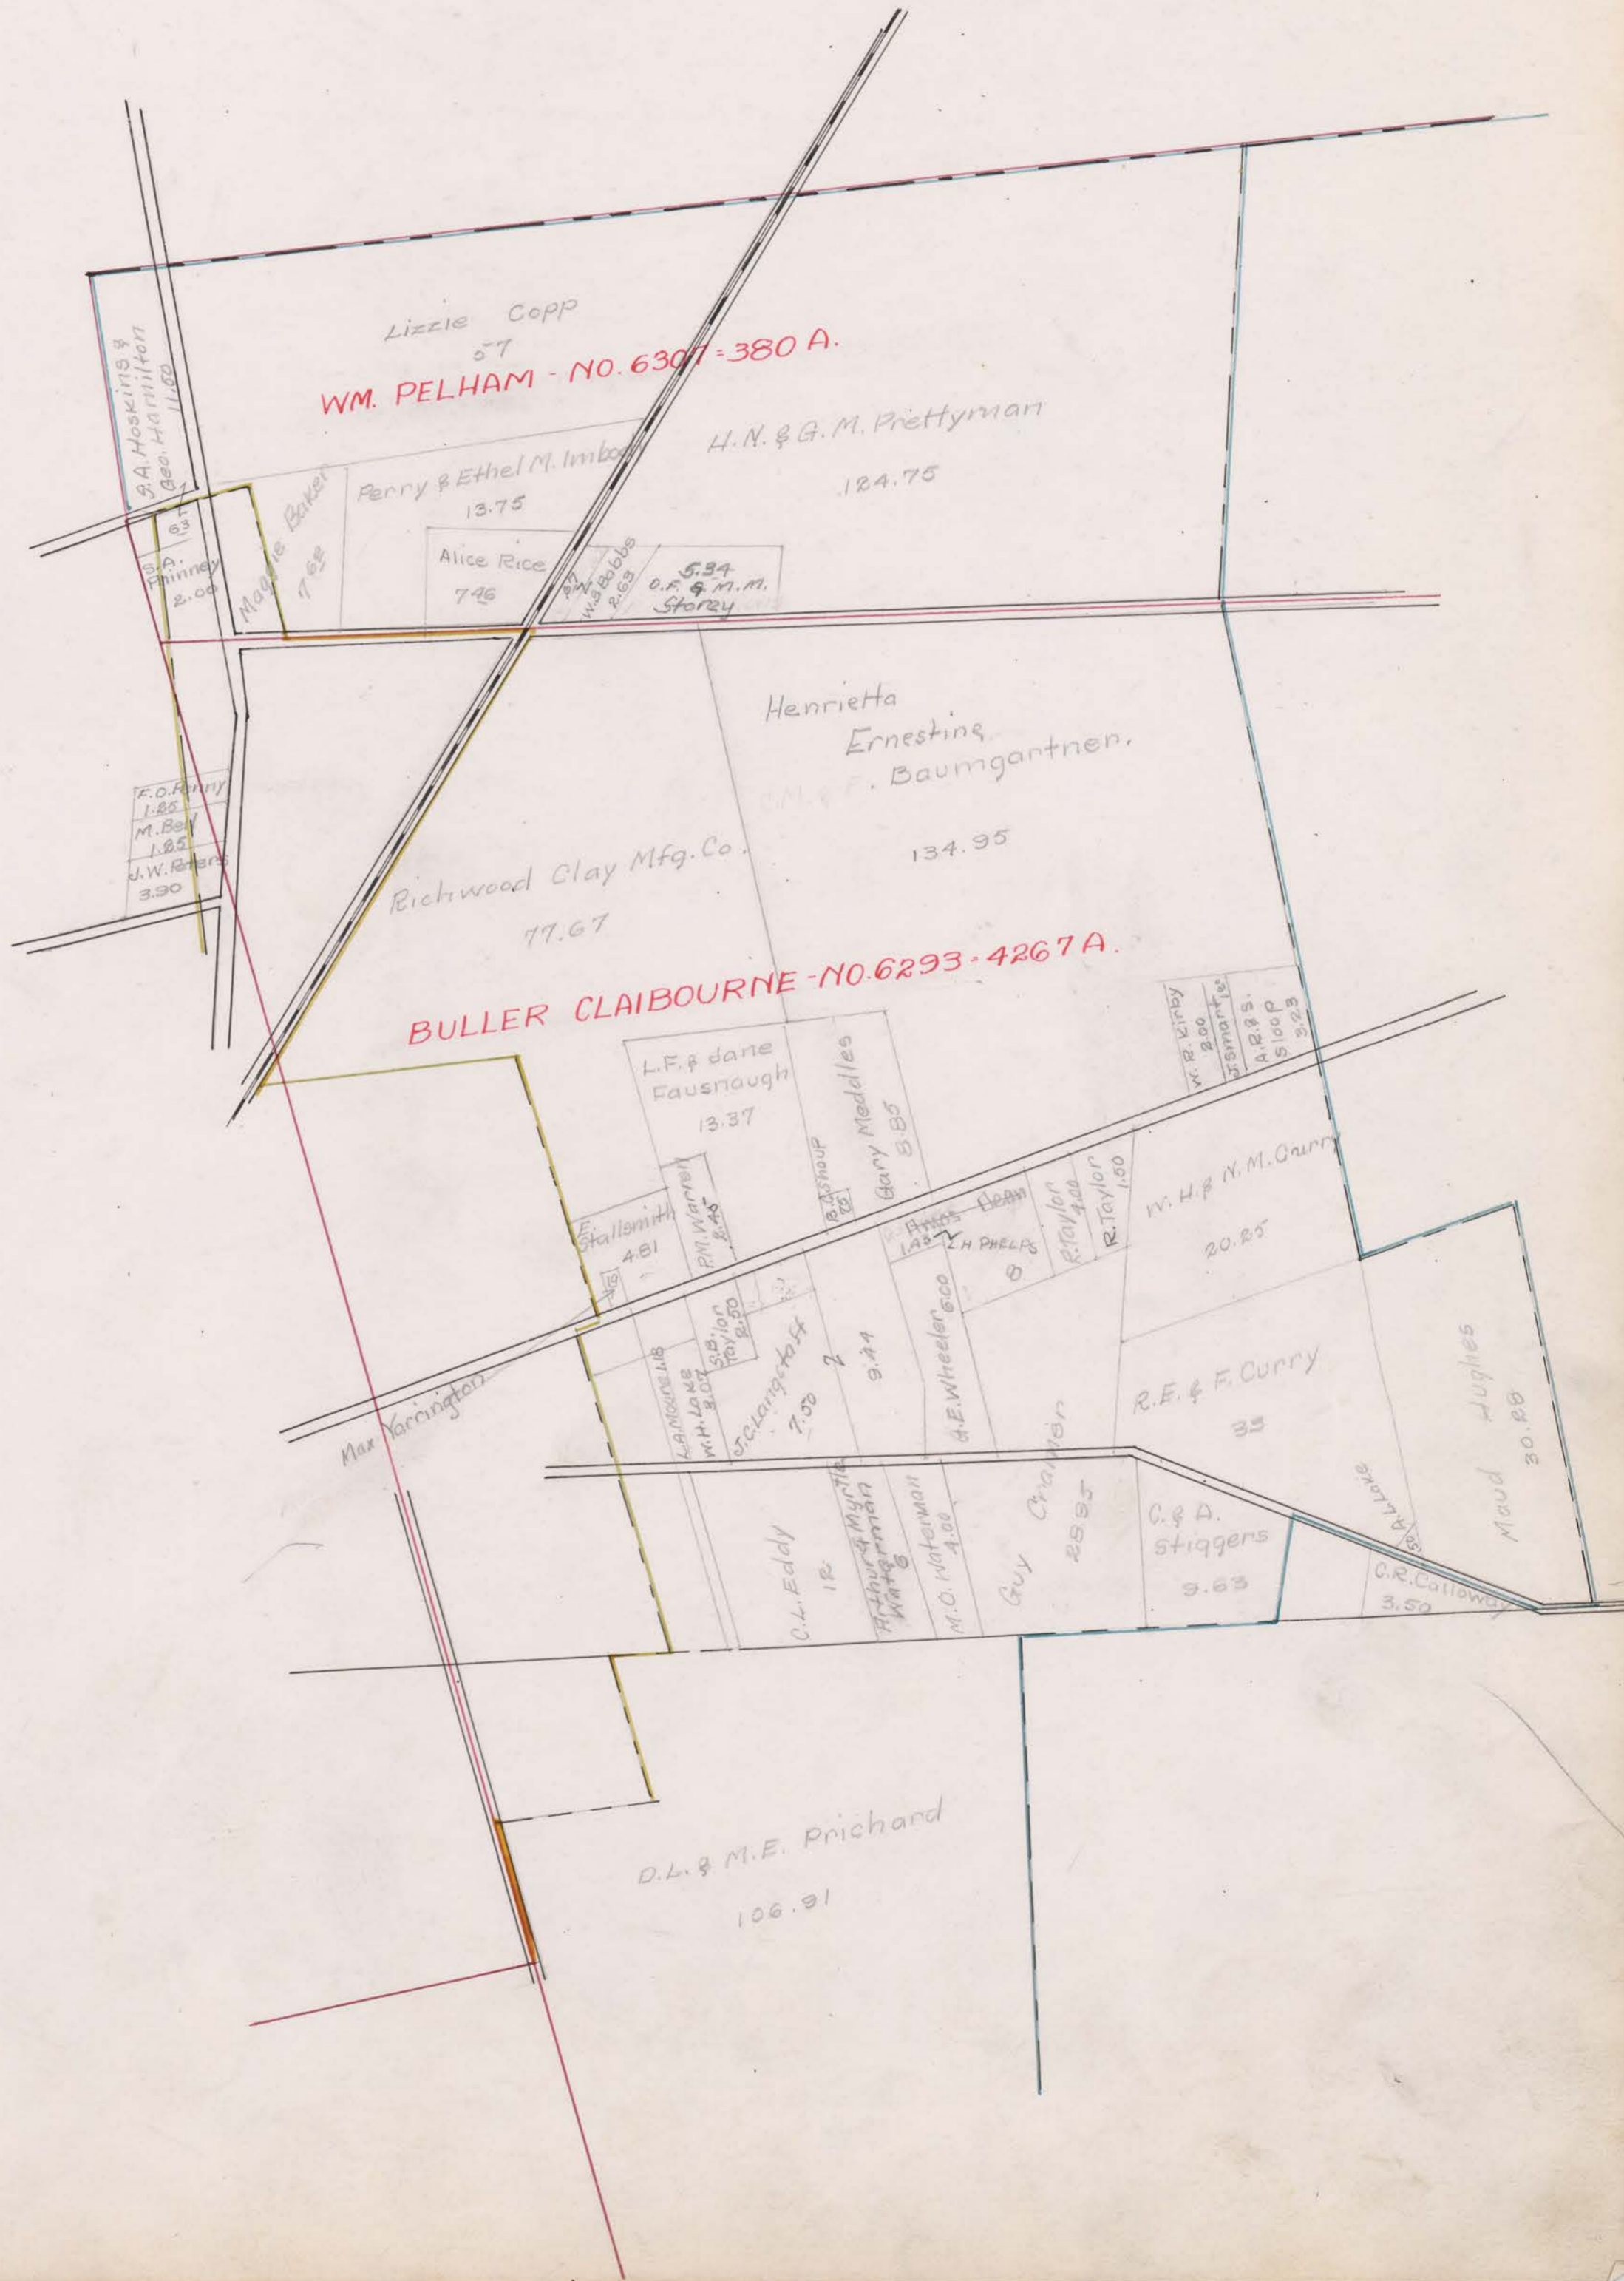 Lizzie Copp
57
WM. PELHAM - NO. 6307 = 380 A.
S.A. Hoskins &
Geo. Hamilton
11.60
H.N. & G.M. Prettyman
124.75
Perry & Ethel M. Imbody
13.75
Maggie Baker
7.68
Alice Rice
7.46
W.S. Bobbs
2.63
5.34
O.F. & M.M.
Storey
63
S.A.
Phinney
2.00
Henrietta
Ernestine
Baumgartner.
134.95
F.O. Penny
1.85
M. Bell
1.85
J.W. Peters
3.90
Richwood Clay Mfg. Co.
77.67
BULLER CLAIBOURNE - NO. 6293 = 4267 A.
W.R. Kirby
2.00
A.R. & S.
Sloop
3.23
L.F. & Jane
Fausnaugh
13.37
Gary Meddles
8.85
B.G. Shoup
.25
E.
Stallsmith
4.81
P.M. Warren
2.45
Amos Dean
1.43
L H PHELPS
8
R. Taylor
4.00
R. Taylor
1.00
W.H. & N.M. Curry
20.25
Max Yarrington
L.A. Moure 1.18
W.H. Lake
S.B.
Taylor
2.50
J.C. Langstaff
7.50
2
9.44
G.E. Wheeler 6.00
R.E. & F. Curry
35
Maud Hughes
30.28
C.L. Eddy
12
Arthur & Myrtle
Waterman
6
M.O. Waterman
4.00
Guy Cramer
28.85
C. & D.
Stiggers
9.63
.50 A.L. Lake
C.R. Calloway
3.50
D.L. & M.E. Prichard
106.91